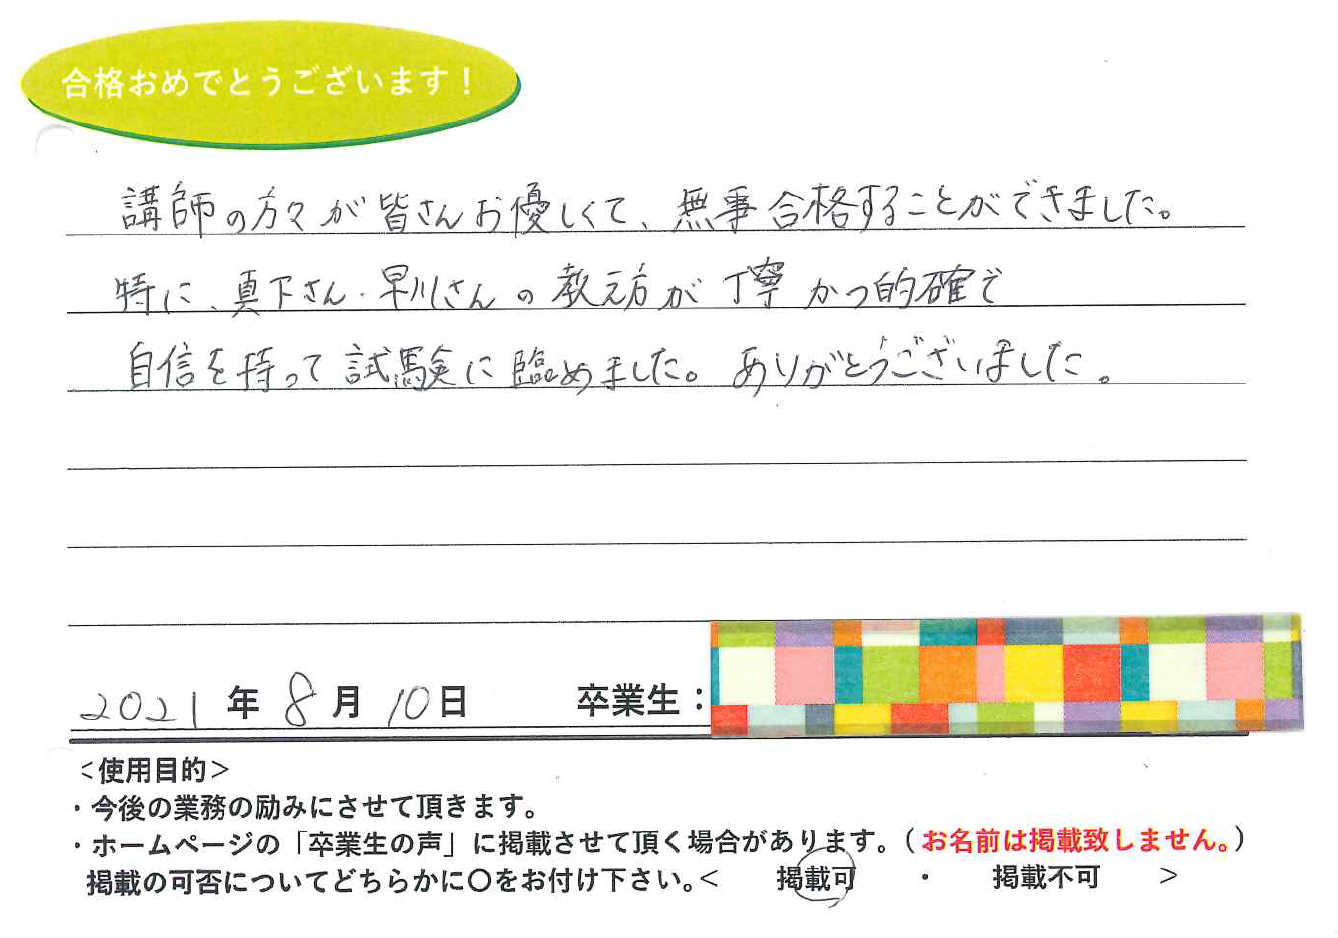 合格おめでとうございます！
講師の方々が皆さんお優しくて、無事合格することができました。
特に、真下さん・早川さんの教え方が丁寧かつ的確で
自信を持って試験に臨めました。ありがとうございました。
2021年8月10日 卒業生：
＜使用目的＞
・今後の業務の励みにさせて頂きます。
・ホームページの「卒業生の声」に掲載させて頂く場合があります。（お名前は掲載致しません。）
掲載の可否についてどちらかに〇をお付け下さい。＜ 掲載可 ・ 掲載不可 ＞